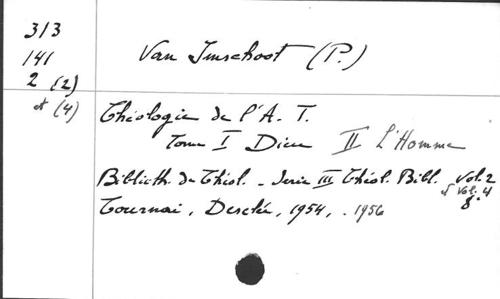 313
141
2 (2)
et (4)
Van Imschoot (P.)
Théologie de l'A. T.
Tome I Dieu II L'Homme
Biblioth. de Théol. - Serie III Théol. Bibl. Vol. 2
et Vol. 4
8°
Tournai, Desclée, 1954, . 1956